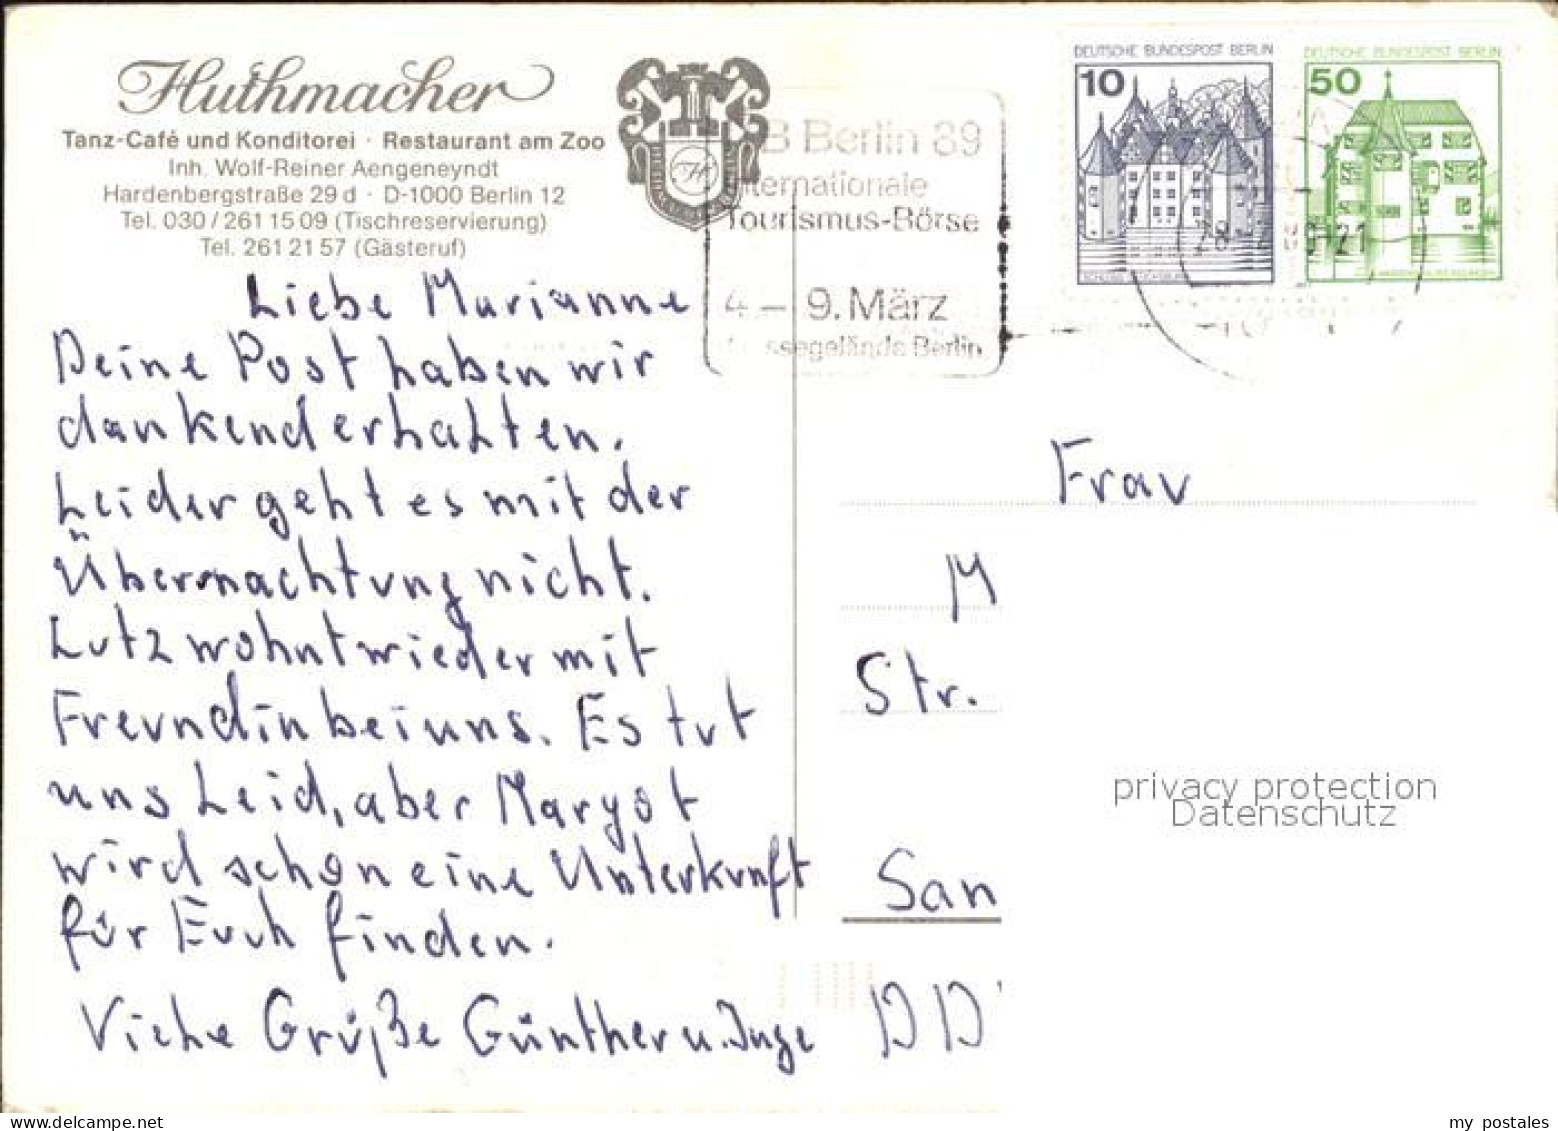 Huthmacher
Tanz-Café und Konditorei · Restaurant am Zoo
Inh. Wolf-Reiner Aengeneyndt
Hardenbergstraße 29 d · D-1000 Berlin 12
Tel. 030/261 15 09 (Tischreservierung)
Tel. 261 21 57 (Gästeruf)
B Berlin 89
Internationale
Tourismus-Börse
4. – 9. März
ssegelände Berlin
DEUTSCHE BUNDESPOST BERLIN
10
DEUTSCHE BUNDESPOST BERLIN
50
Liebe Marianne
Deine Post haben wir
dankend erhalten.
Leider geht es mit der
Übernachtung nicht.
Lutz wohnt wieder mit
Freundin bei uns. Es tut
uns Leid, aber Margot
wird schon eine Unterkunft
für Euch finden.
Viele Grüße Günther u. Inge
Frau
M
Str.
San
DD
privacy protection
Datenschutz
my postales